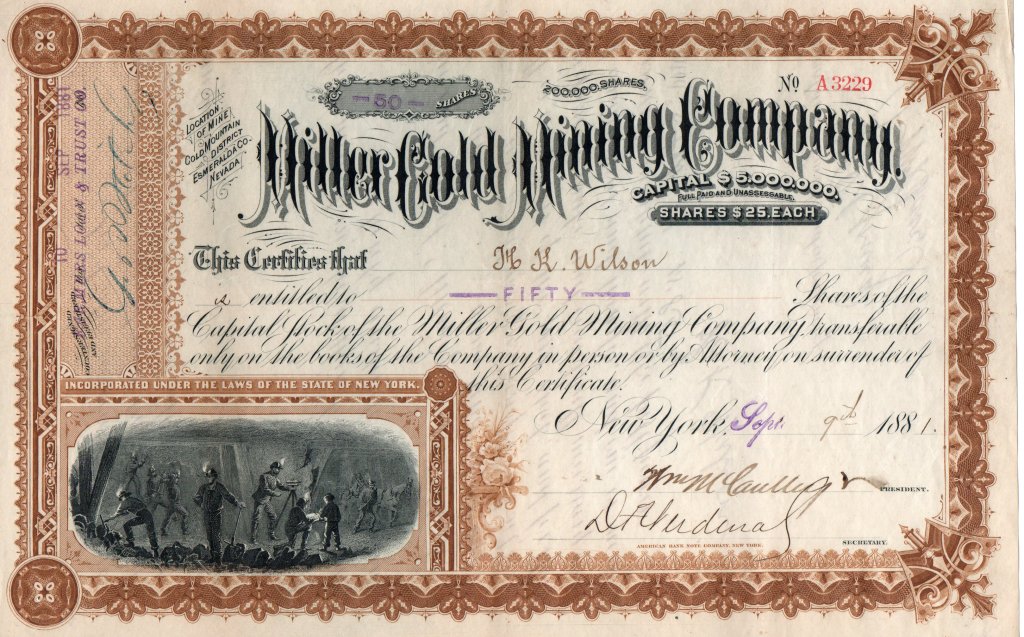 No A3229
50 SHARES
200,000 SHARES.
LOCATION
OF MINE
GOLD MOUNTAIN
DISTRICT
ESMERALDA CO.
NEVADA
Miller Gold Mining Company.
CAPITAL $5,000,000,
FULL PAID AND UNASSESSABLE.
SHARES $25. EACH
This Certifies that H K. Wilson
is entitled to FIFTY Shares of the
Capital Stock of the Miller Gold Mining Company, transferable
only on the books of the Company in person or by Attorney on surrender of
this Certificate.
New York, Sept. 9th 1881.
PRESIDENT.
SECRETARY.
AMERICAN BANK NOTE COMPANY, NEW YORK.
INCORPORATED UNDER THE LAWS OF THE STATE OF NEW YORK.
10 SEP 1881
LOAN & TRUST CO.